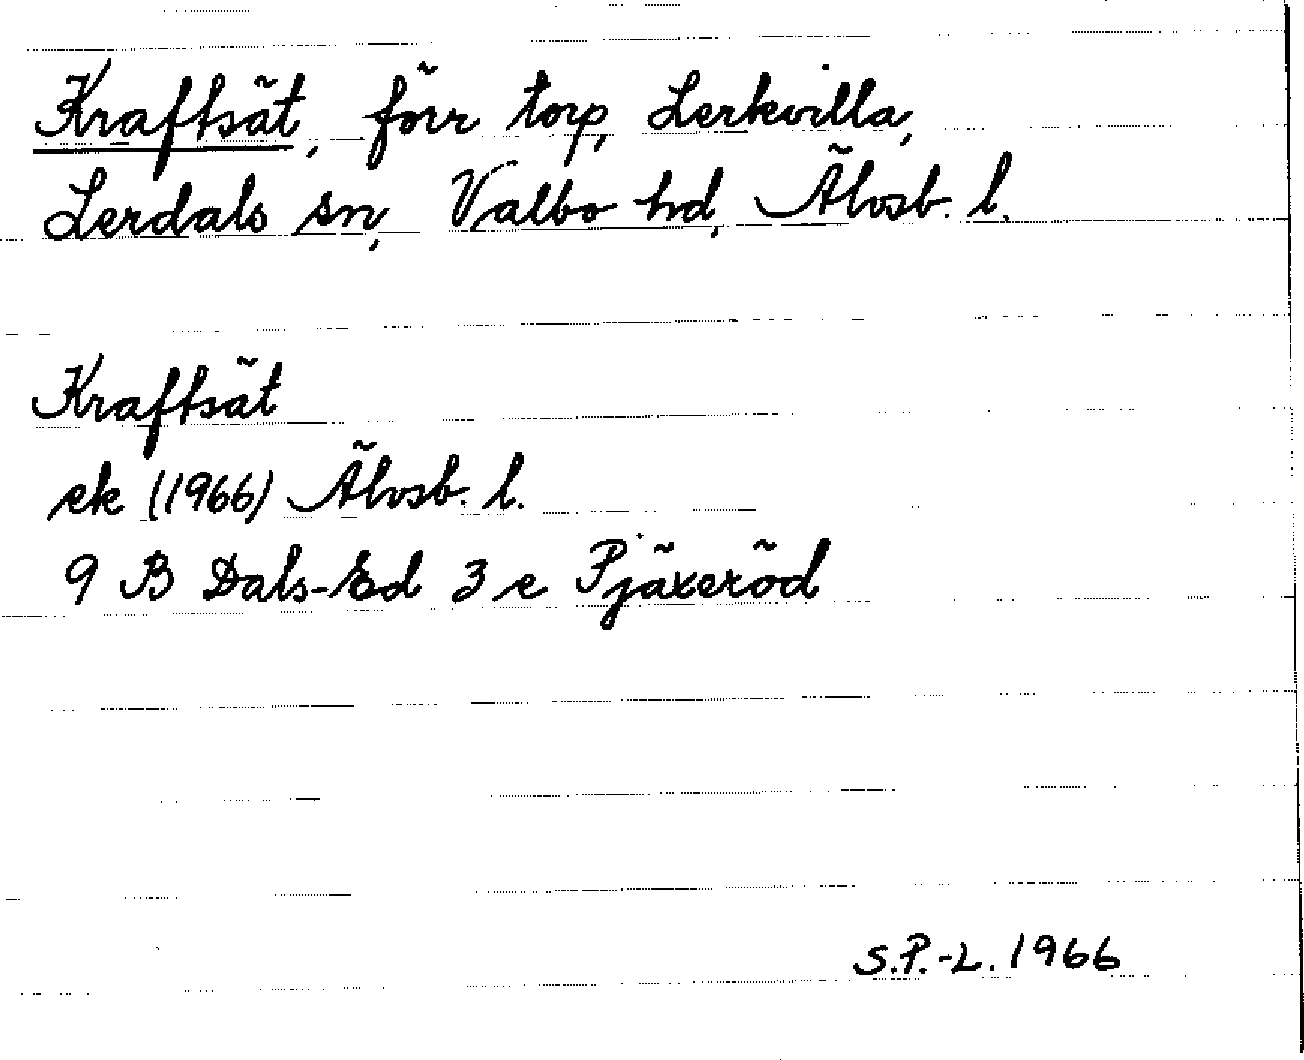 Kraftsät, förr torp, Lerkvilla,
Lerdals sn, Valbo hd, Älvsb. l.
Kraftsät
ek (1966) Älvsb. l.
9 B Dals-Ed 3 e Pjäxeröd
S.P.-L. 1966